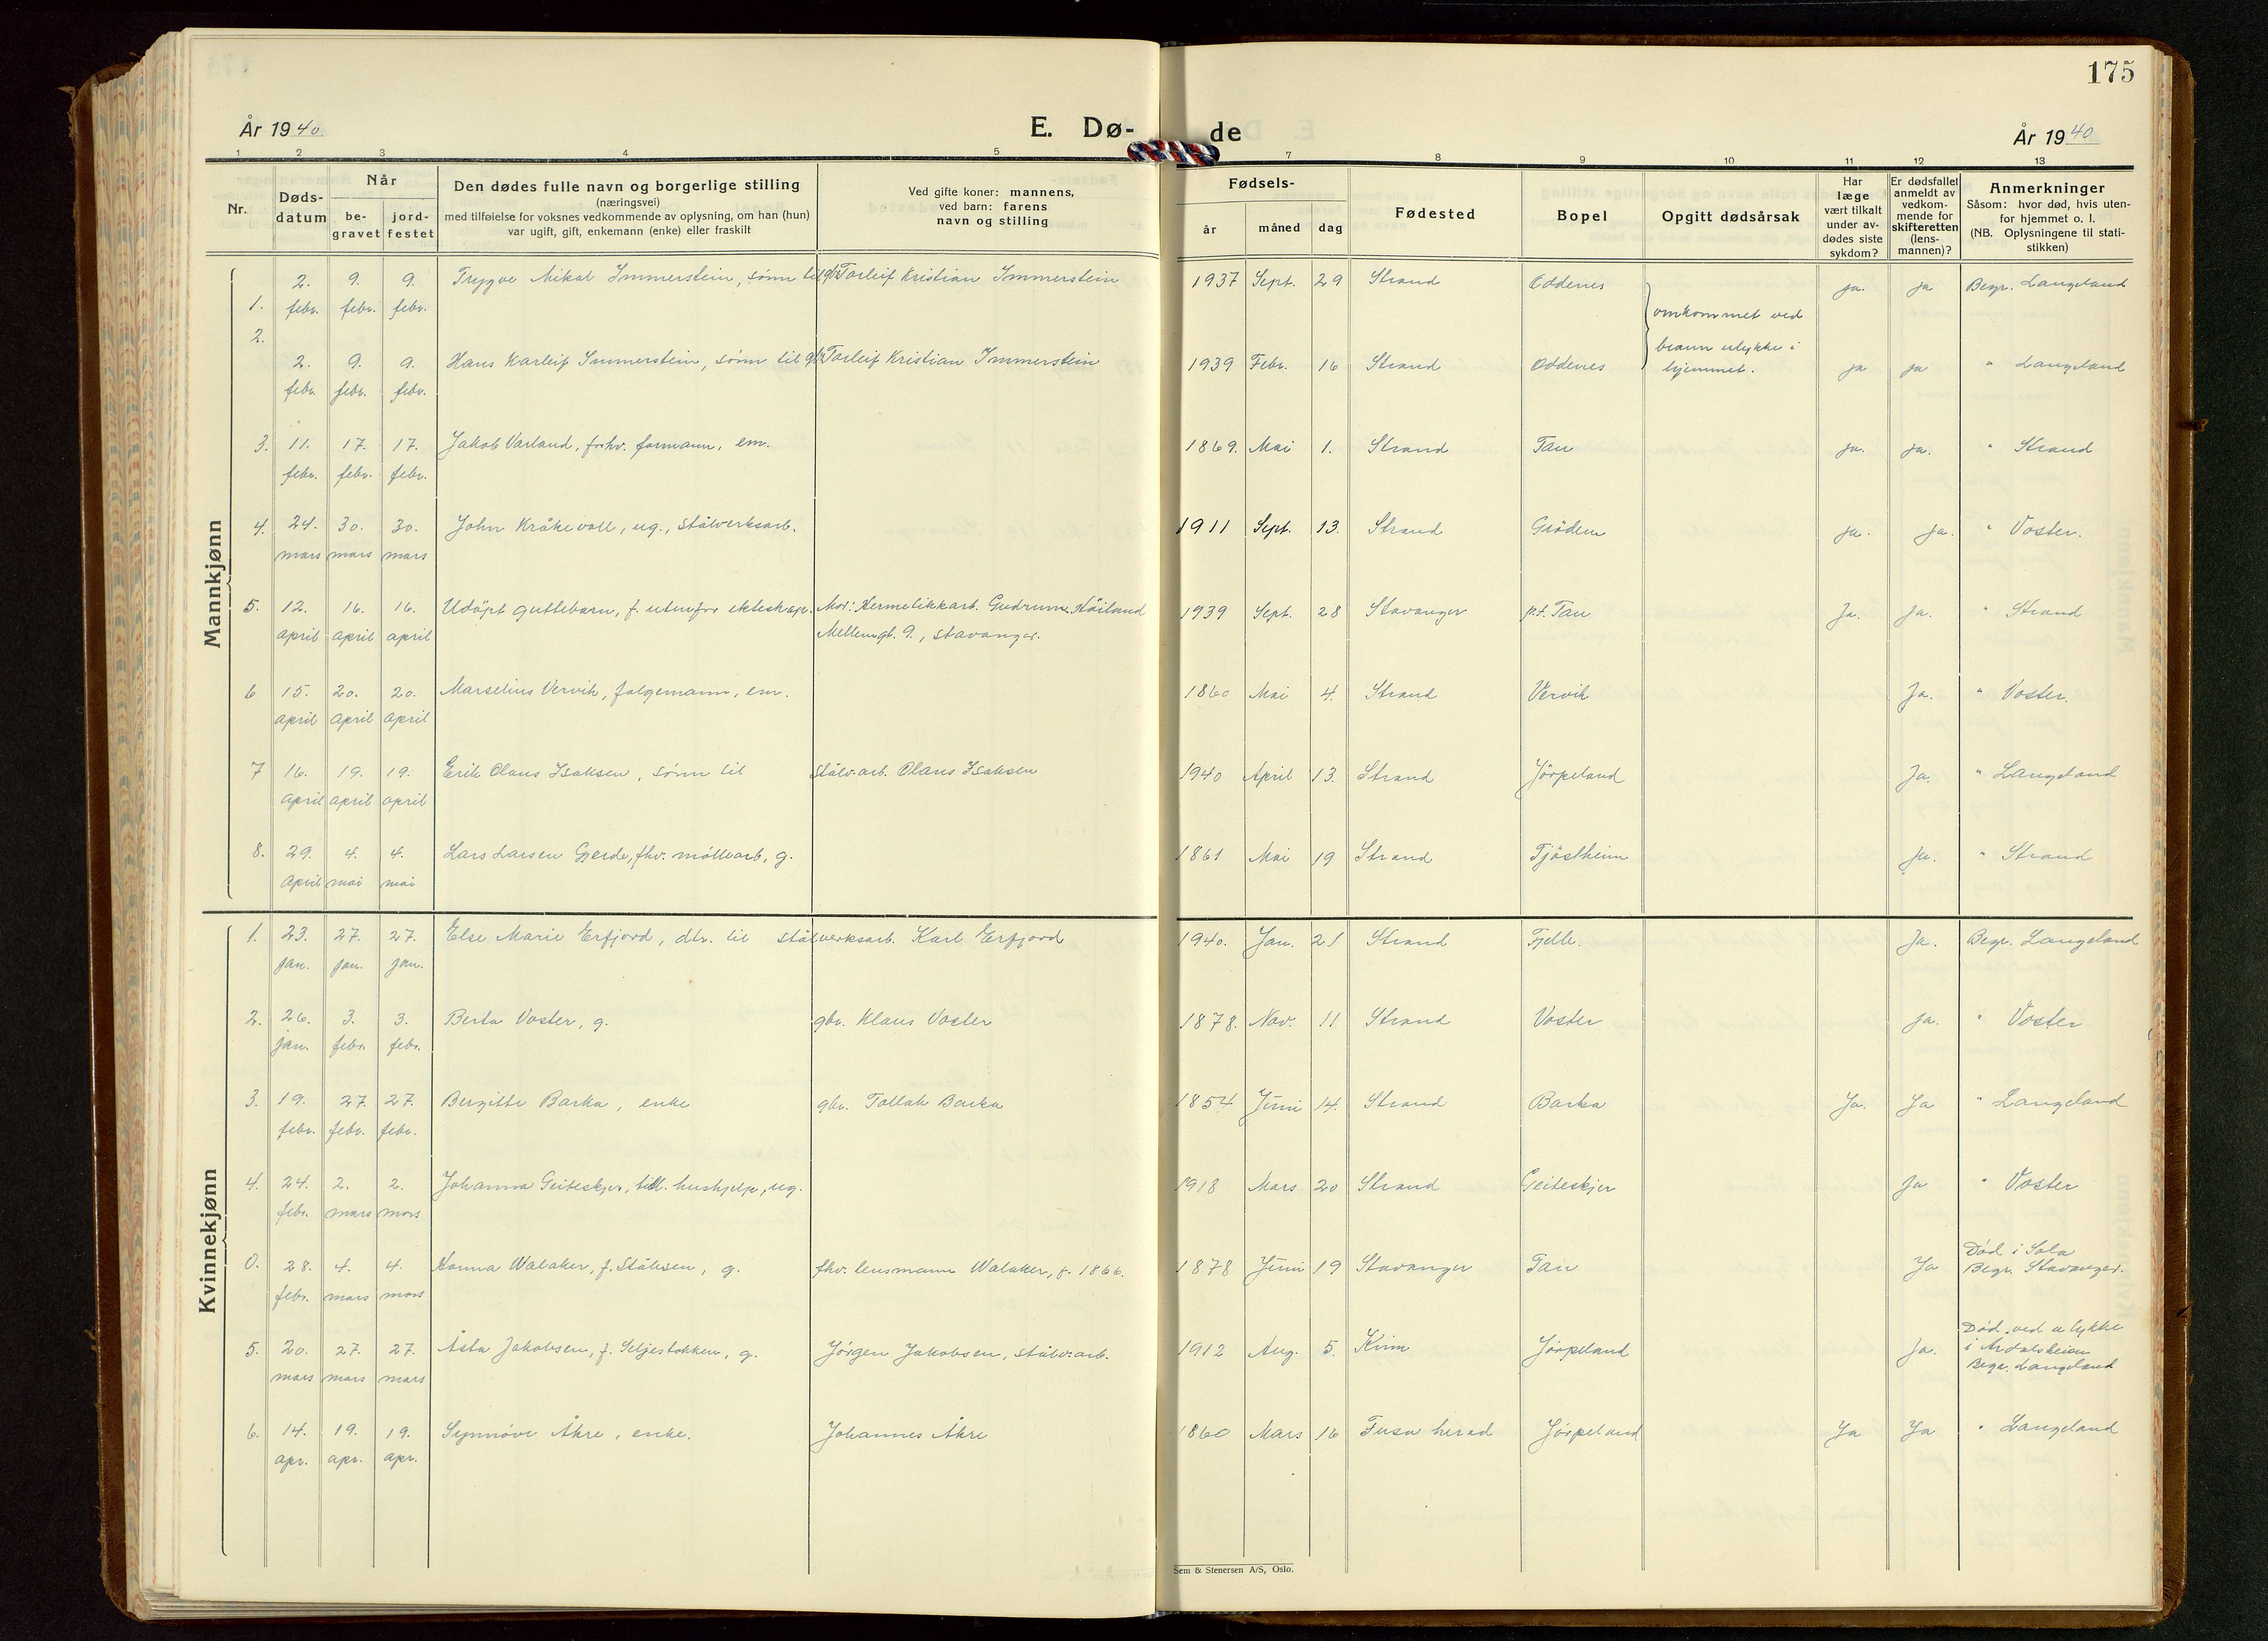 175
År 1940.
E. Dø-
de
År 1940
1 2 3 4 5 7 8 9 10 11 12 13
Nr.
Døds-
datum
Når
be-
gravet
jord-
festet
Den dødes fulle navn og borgerlige stilling
(næringsvei)
med tilføielse for voksnes vedkommende av oplysning, om han (hun)
var ugift, gift, enkemann (enke) eller fraskilt
Ved gifte koner: mannens,
ved barn: farens
navn og stilling
Fødsels-
år
måned
dag
Fødested
Bopel
Opgitt dødsårsak
Har
læge
vært tilkalt
under av-
dødes siste
sykdom?
Er dødsfallet
anmeldt av
vedkom-
mende for
skifteretten
(lens-
mannen)?
Anmerkninger
Såsom: hvor død, hvis uten-
for hjemmet o. l.
(NB. Oplysningene til stati-
stikken)
Mannkjønn
1. 2. febr. 9. febr. 9. febr. Trygve Mikal Immerstein, sønn til gbr. Torleif Kristian Immerstein 1937 Sept. 29 Strand Oddenes ja. ja Begr. Langeland
omkommet ved
brann ulykke i
hjemmet.
2. 2. febr. 9. febr. 9. febr. Hans Karleif Immerstein, sønn til gbr. Torleif Kristian Immerstein 1939 Febr. 16 Strand Oddenes ja ja " Langeland
3. 11. febr. 17. febr. 17. febr. Jakob Varland, forhv. formann, em. 1869. Mai 1. Strand Tau ja. ja. " Strand
4. 24. mars 30. mars 30. mars John Kråkevoll, ug., stålverksarb. 1911 Sept. 13. Strand Grödem ja. ja. " Voster.
5. 12. april 16. april 16. april Udöpt guttebarn, f. utenfor ekteskap. Mor: Hermetikkarb. Gudrum Höiland
Mellemgt. 9., Stavanger. 1939 Sept. 28 Stavanger p.t. Tau Ja. Ja. " Strand
6 15. april 20. april 20. april Marselius Vervik, folgemann, em. 1860 Mai 4. Strand Vervik Ja. " Voster.
7 16. april 19. april 19. april Erik Olaus Isaksen, sönn til stålv.arb. Olaus Isaksen 1940 April 13. Strand Jörpeland Ja. " Langeland
8. 29. april 4. mai 4. mai Lars Larsen Gjerde, fhv. möllearb, g. 1861 Mai 19 Strand Tjöstheim Ja. " Strand
Kvinnekjønn
1. 23. jan. 27. jan. 27. jan. Else Marie Erfjord, dtr. til stålverksarb. Karl Erfjord 1940. Jan. 21 Strand Fjelle. Ja. Begr. Langeland
2. 26. jan. 3. febr. 3. febr. Berta Voster, g. gbr. Klaus Voster 1878. Nov. 11 Strand Voster ja. " Voster
3. 19. febr. 27. febr. 27. febr. Bergitte Barka, enke gbr. Tollak Barka 1854 Juni 14. Strand Barka Ja. Ja " Langeland
4. 24. febr. 2. mars 2. mars Johanna Geiteskjer, tidl. hushjelp, ug. 1918 Mars 20 Strand Geiteskjer Ja " Voster
0. 28. febr. 4. mars 4. mars Hanna Walaker, f. Stålesen, g. fhv. lensmann Walaker, f. 1866. 1878 Juni 19 Stavanger Tau Ja Död i Sola
Begr. Stavanger.
5. 20. mars 27. mars 27. mars Åsta Jakobsen, f. Seljestokken, g. Jörgen Jakobsen, stålv.arb. 1912 Aug. 5. Jörpeland Ja. Död ved ulykke
i Årdalsheien
Begr. Langeland
6. 14. apr. 19. apr. 19. apr. Synnöve Åkre, enke. Johannes Åkre 1860 Mars 16 Fusa herad Jörpeland Ja Ja " Langeland
Sem & Stenersen A/S, Oslo.